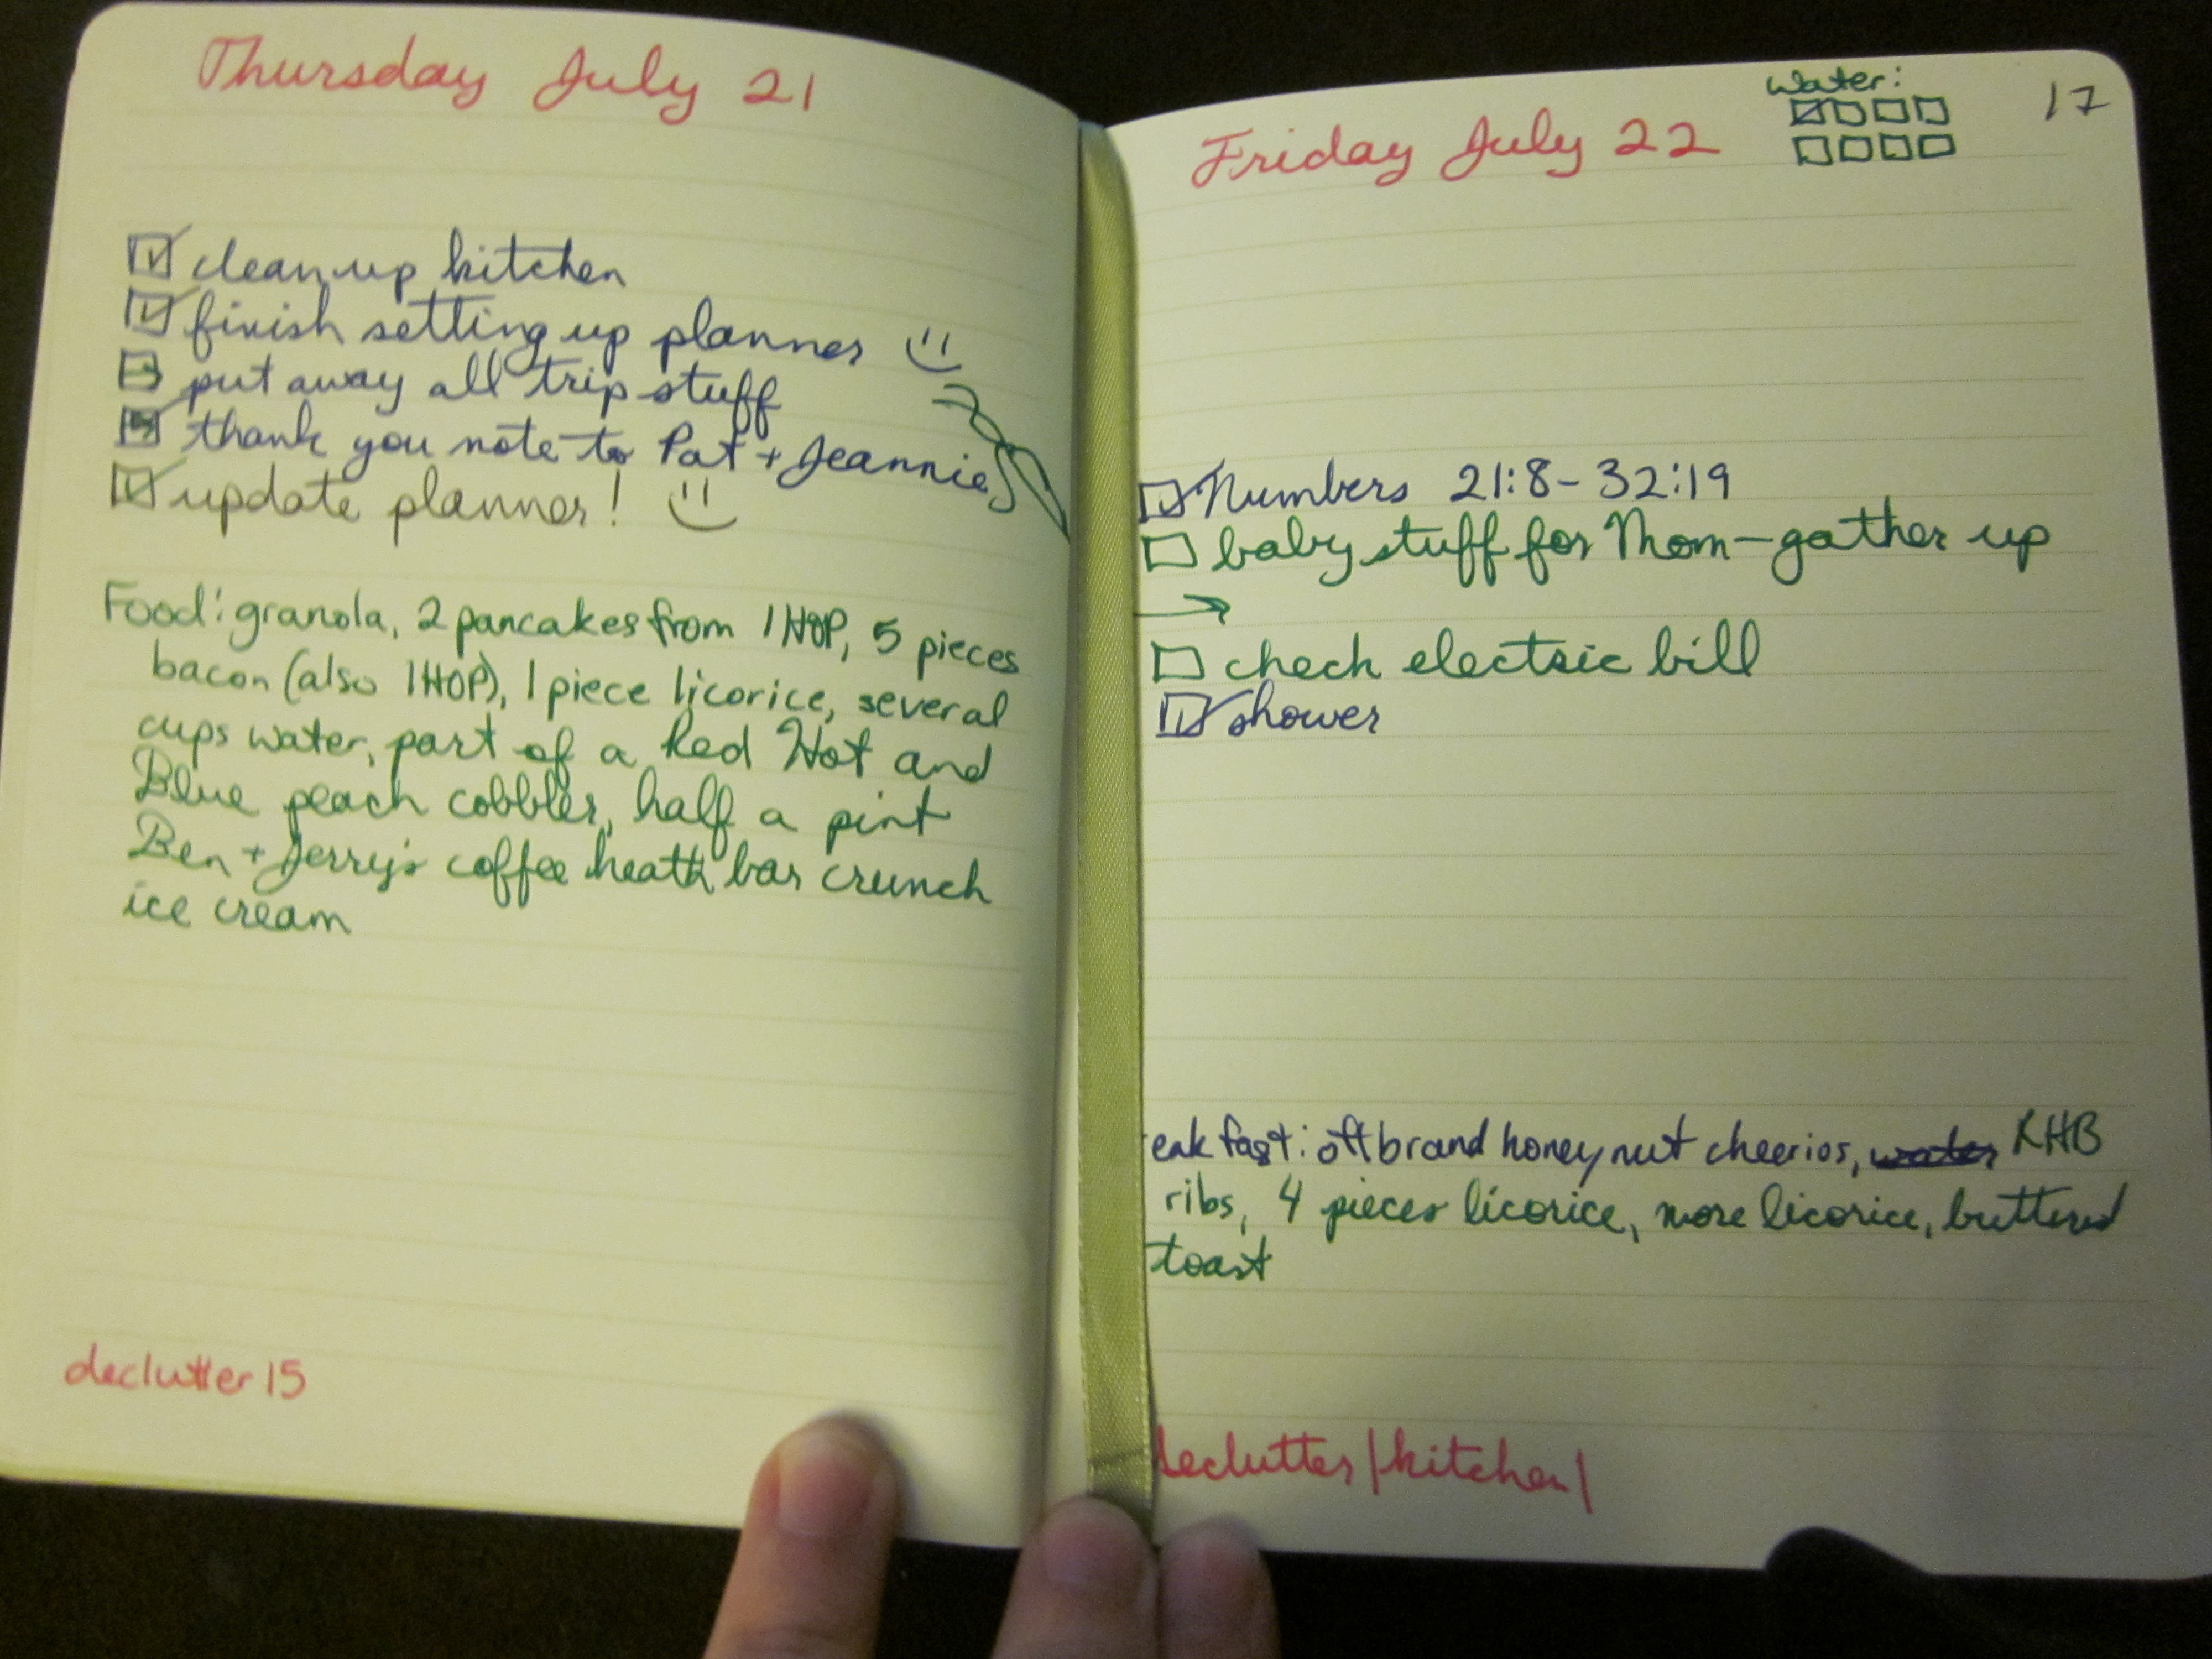 Thursday July 21
clean up kitchen
finish setting up planner
put away all trip stuff
thank you note to Pat + Jeannie
update planner!
Food: granola, 2 pancakes from IHOP, 5 pieces
bacon (also IHOP), 1 piece licorice, several
cups water, part of a Red Hot and
Blue peach cobbler, half a pint
Ben + Jerry's coffee heath bar crunch
ice cream
declutter 15
Water:
17
Friday July 22
Numbers 21:8-32:19
baby stuff for Mom-gather up
check electric bill
shower
eakfast: offbrand honeynut cheerios, water RHB
ribs, 4 pieces licorice, more licorice, buttered
toast
declutter/kitchen/